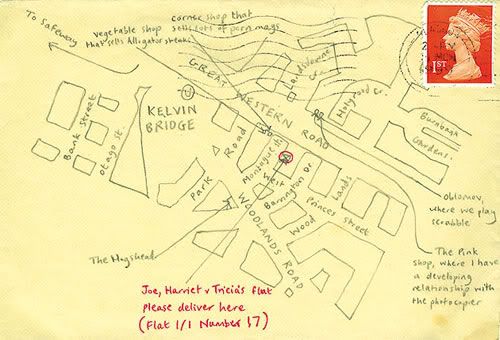 To Safeway
vegetable shop
that sells Alligator steaks
corner shop that
sells lots of porn mags
1ST
GREAT WESTERN ROAD
Lansdowne Cr.
Holyrood Cr.
Burnbank
Gardens.
KELVIN
BRIDGE
U
Bank Street
Otago st.
Park Road
Montague st.
West
Barrington Dr.
Woodlands
Princes street
WOODLANDS ROAD
Oblomov,
where we play
scrabble
The Hogshead
The Pink
shop, where I have
a developing
relationship with
the photocopier
Joe, Harriet & Tricia's flat
please deliver here
(Flat 1/1 Number 17)